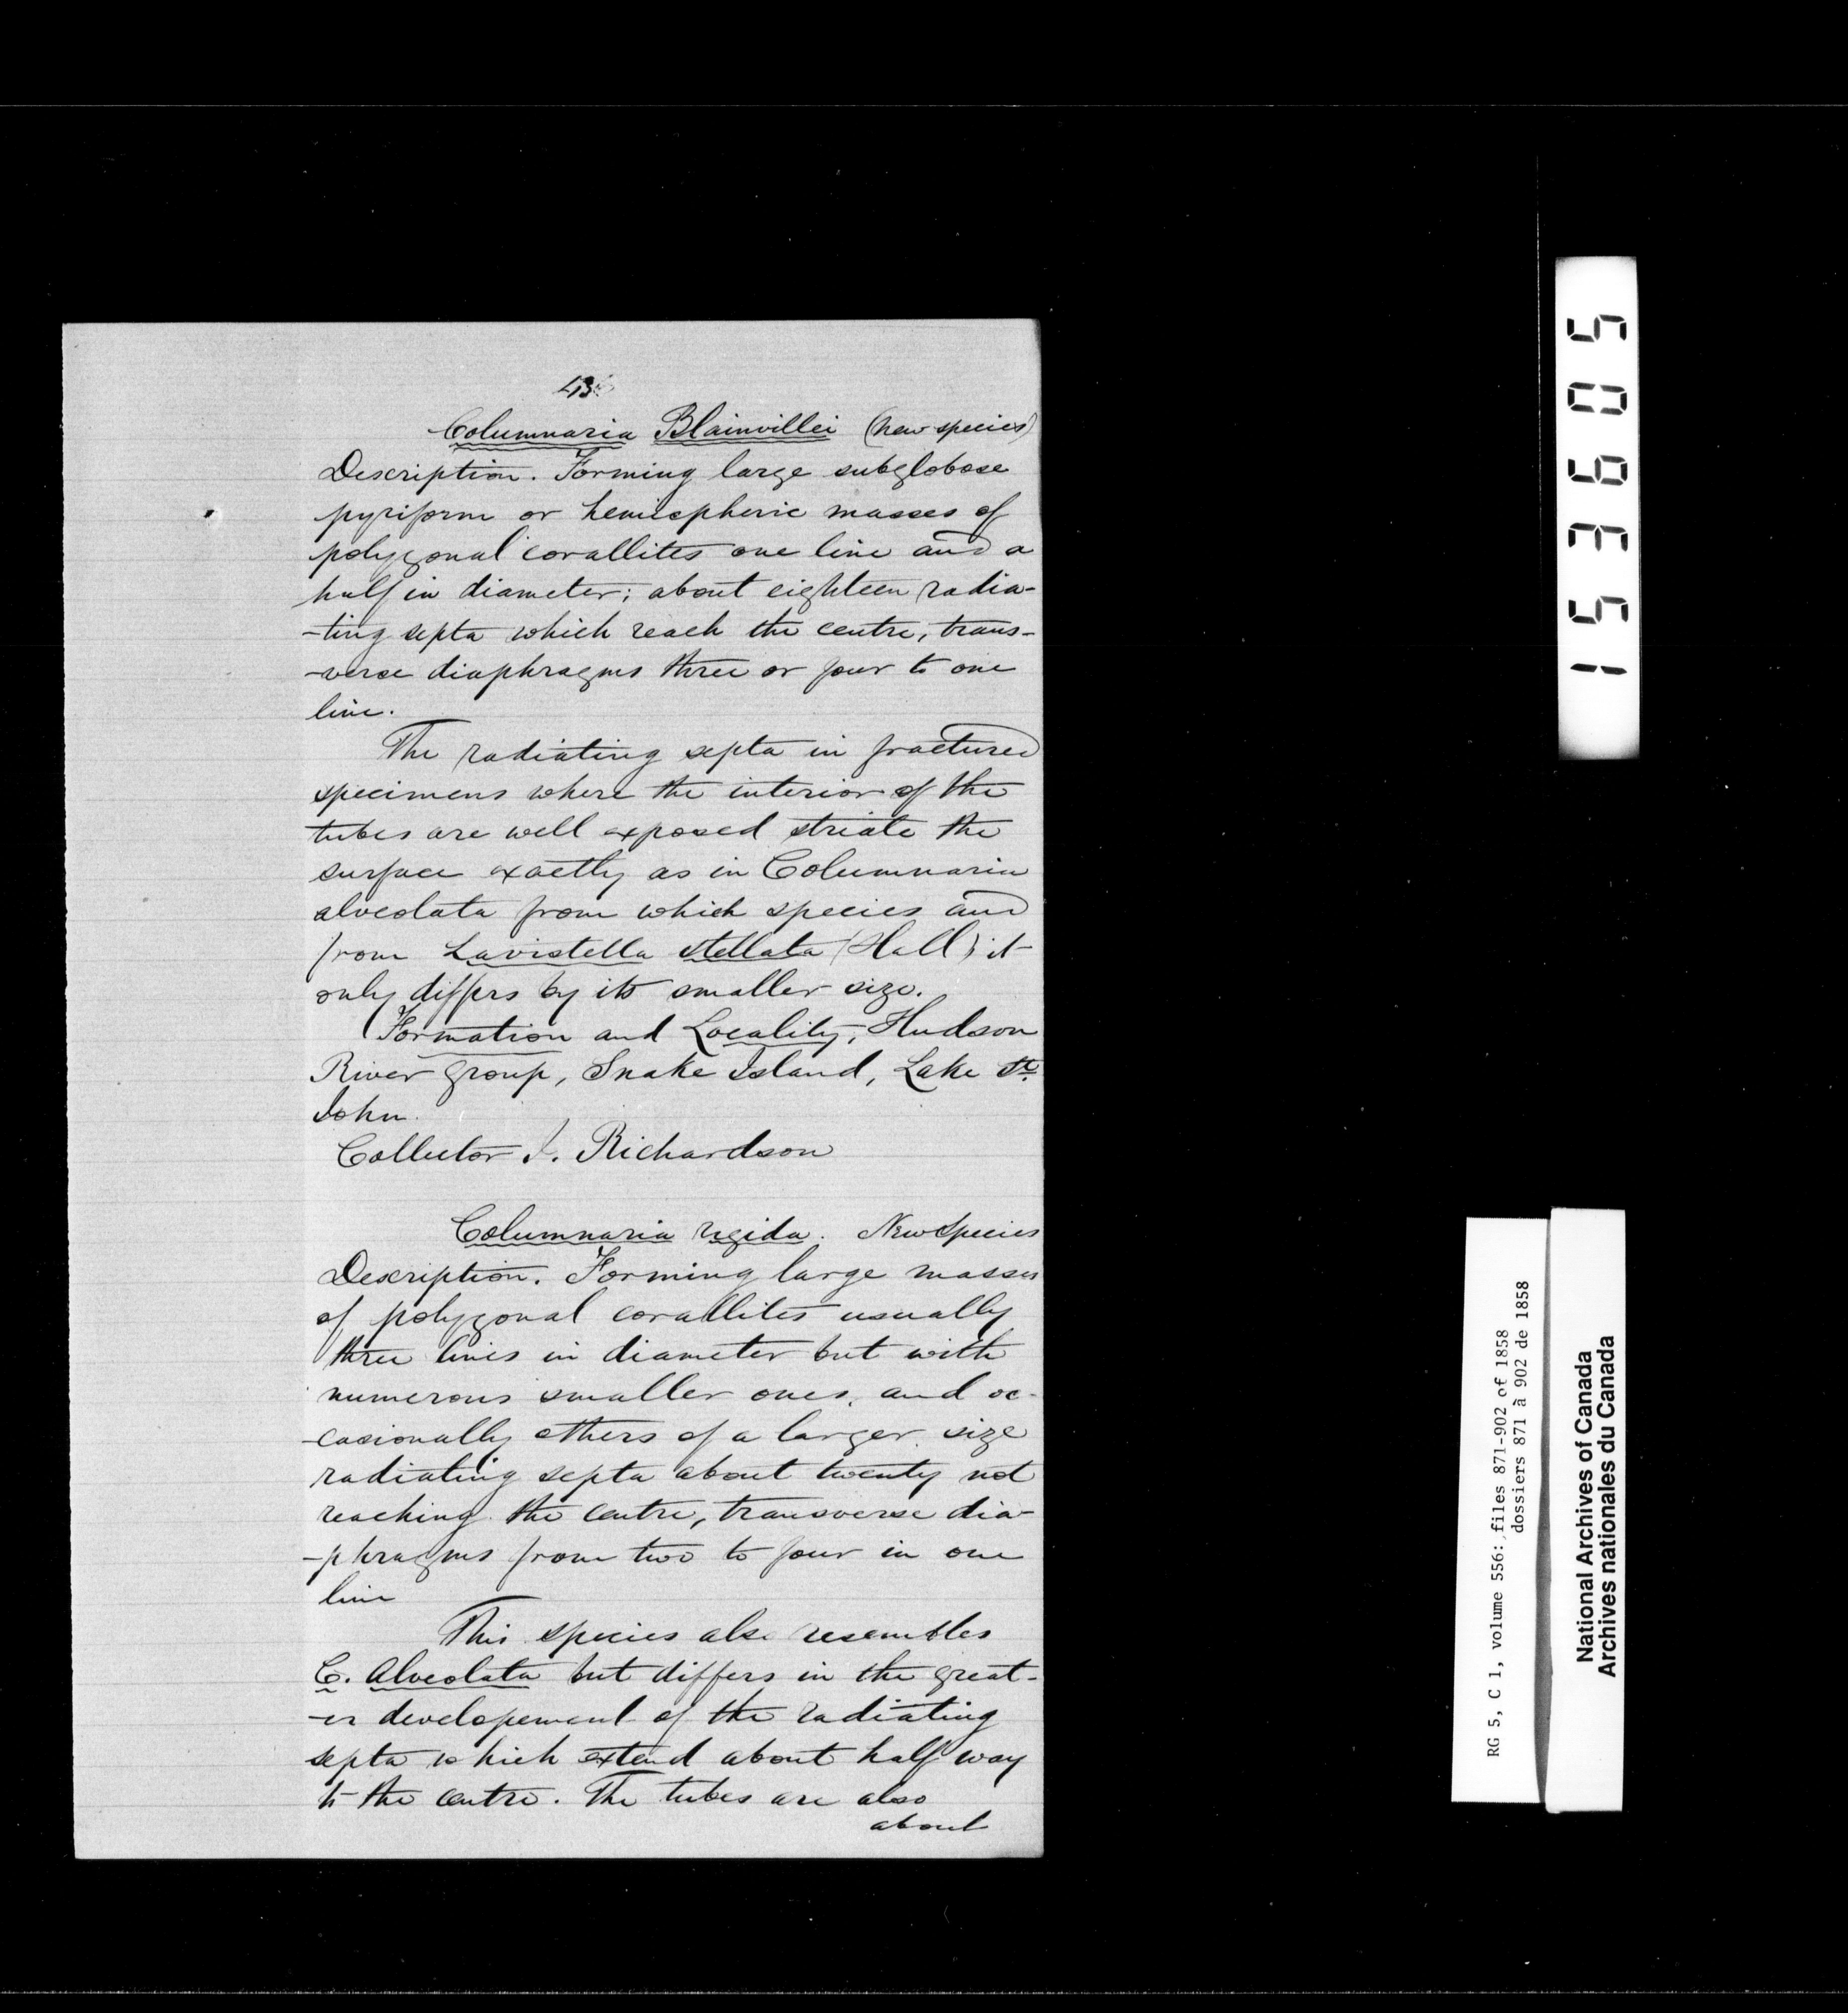 43
Columnaria Blainvillei (new species)
Description. Forming large subglobose
pyriform or hemispheric masses of
polygonal corallites one line and a
half in diameter; about eighteen radia-
-ting septa which reach the centre, trans-
-verse diaphragms three or four to one
line.
The radiating septa in fractured
specimens where the interior of the
tubes are well exposed striate the
surface exactly as in Columnaria
alveolata from which species and
from Lavistella stellata (Hall) it
only differs by its smaller size.
Formation and Locality, Hudson
River group, Snake Island, Lake St.
John.
Collector J. Richardson
Columnaria rigida. New Species
Description. Forming large masses
of polygonal corallites usually
three lines in diameter but with
numerous smaller ones, and oc-
-casionally others of a larger size
radiating septa about twenty not
reaching the centre, transverse dia-
-phragms from two to four in one
line
This species also resembles
C. Alveolata but differs in the great-
-er developement of the radiating
septa which extend about half way
to the centre. The tubes are also
about
153605
RG 5, C 1, volume 556: files 871-902 of 1858
dossiers 871 à 902 de 1858
National Archives of Canada
Archives nationales du Canada